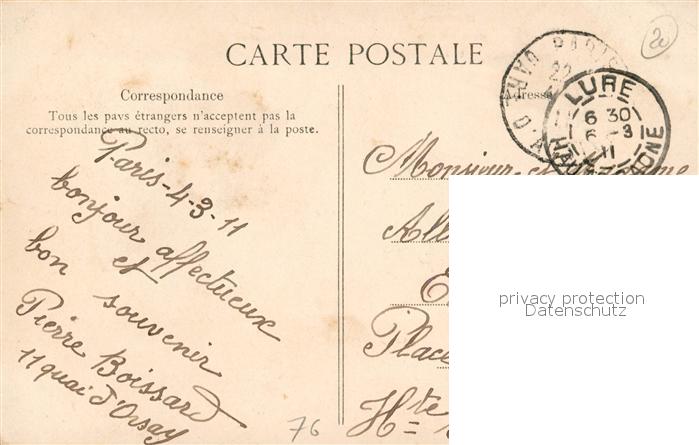 CARTE POSTALE
Correspondance
Tous les pays étrangers n'acceptent pas la
correspondance au recto, se renseigner à la poste.
Paris-4-3-11
bonjour affectueux
et
bon souvenir
Pierre Boissard
11 quai d'Orsay
Adresse
PARIS
22
LURE
6 30
6 -3
11
Monsieur et
Place
Hte
privacy protection
Datenschutz
20
76